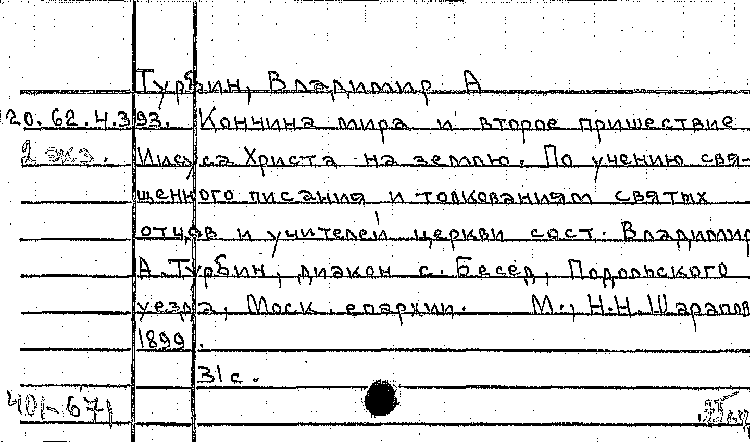 Турбин, Владимир А
120.62.4.393. Кончина мира и второе пришествие
2 экз. Иисуса Христа на землю. По учению свя-
щенного писания и толкованиям святых
отцов и учителей церкви сост. Владимир
А. Турбин, диакон с. Бесед, Подольского
уезда, Моск. епархии. М., Н.Н. Шарапов
1899.
31 с.
401-671